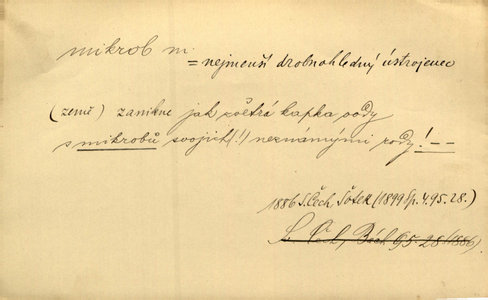 mikrob m.
= nejmenší drobnohledný ústrojenec
(země) zanikne jak setrá kapka vody
s mikrobů svojich (!) neznámými rody! --
1886 S. Čech, Šotek (1899 Sp. 4. 95. 28.)
S. Čech, 95. 28 (1886)